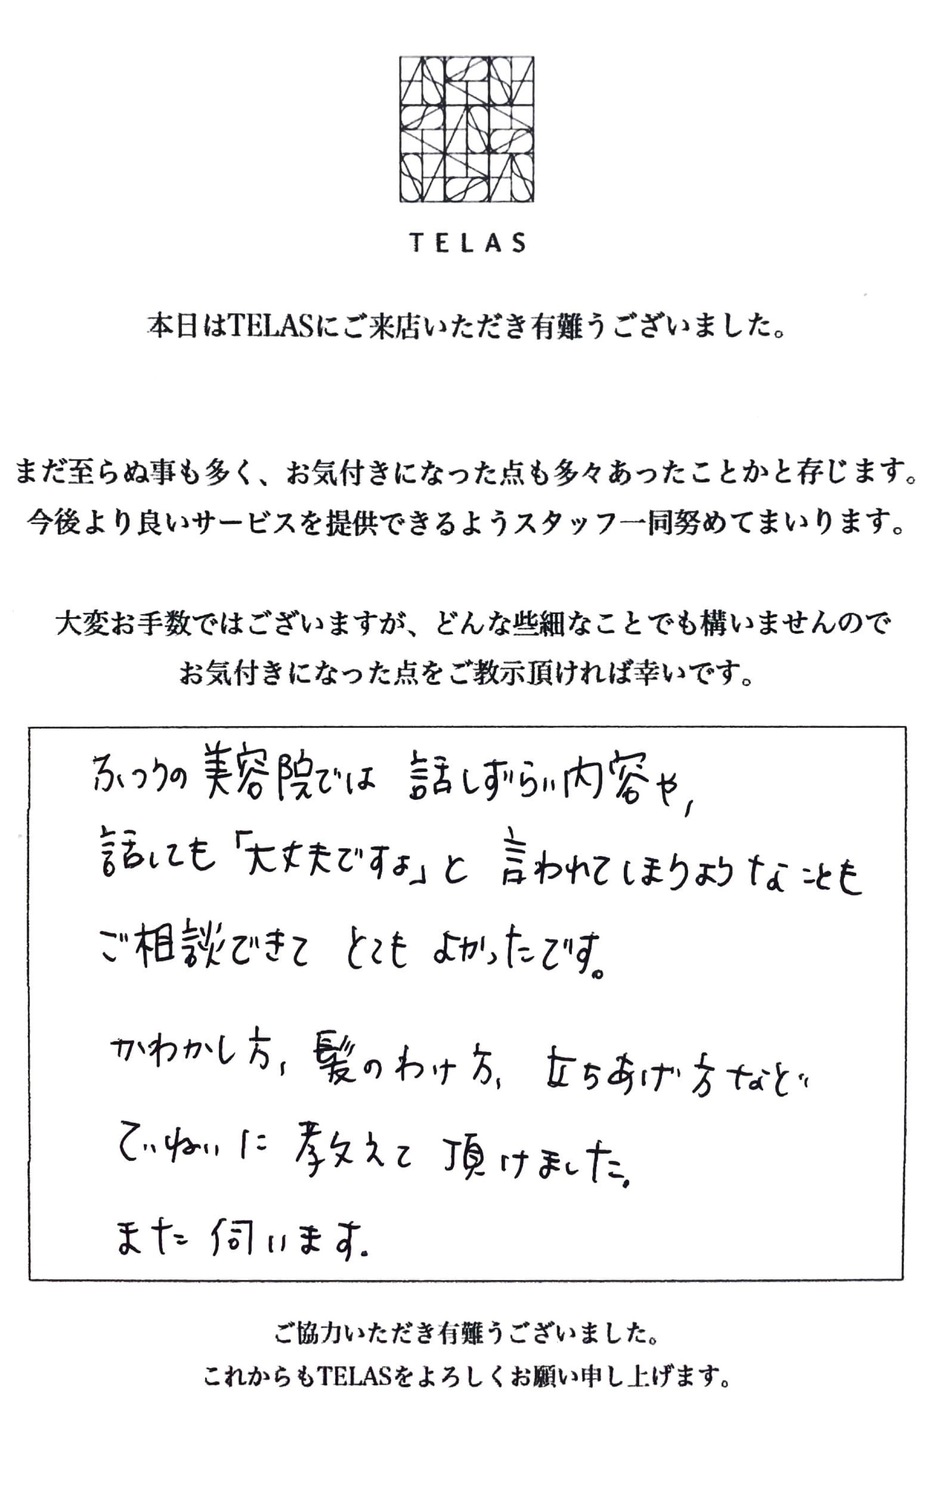 TELAS
本日はTELASにご来店いただき有難うございました。
まだ至らぬ事も多く、お気付きになった点も多々あったことかと存じます。
今後より良いサービスを提供できるようスタッフ一同努めてまいります。
大変お手数ではございますが、どんな些細なことでも構いませんので
お気付きになった点をご教示頂ければ幸いです。
ふつうの美容院では 話しずらい内容や、
話しても「大丈夫ですよ」と 言われてしまうようなことも
ご相談できて とても よかったです。
かわかし方、髪のわけ方、立ちあげ方など
ていねいに 教えて 頂けました。
また 伺います.
ご協力いただき有難うございました。
これからもTELASをよろしくお願い申し上げます。